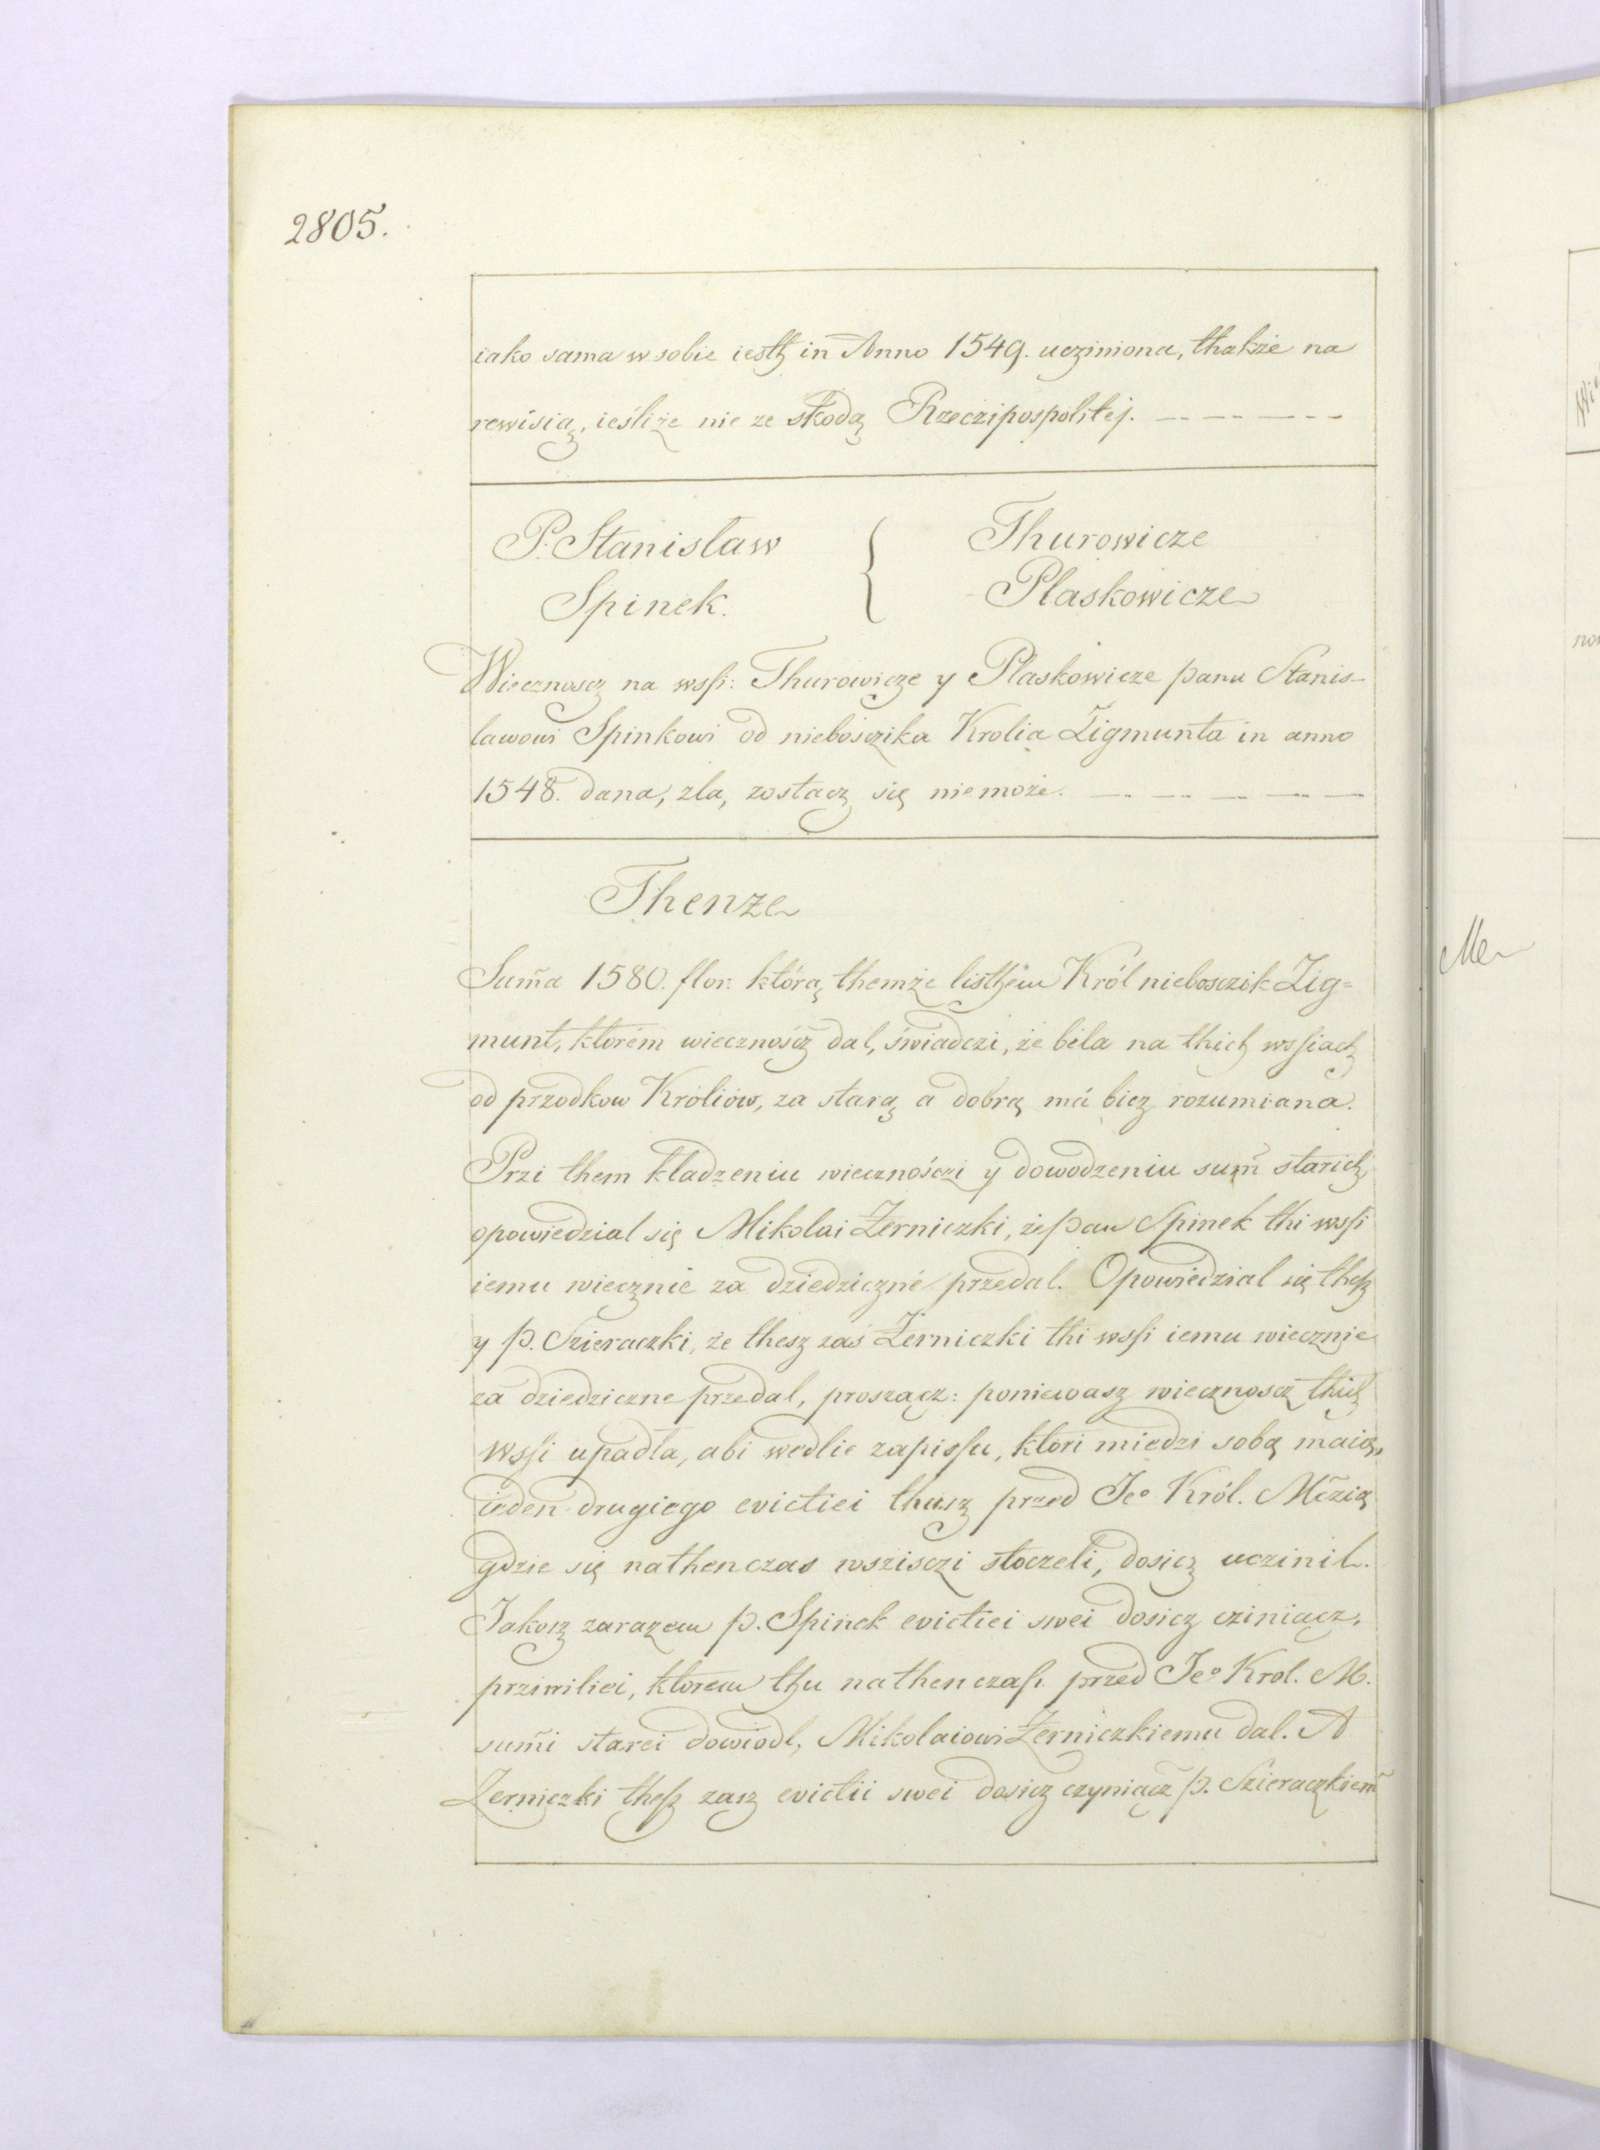 2805.
iako sama w sobie iesth in Anno 1549. ucziniona, thakże na
rewisią, ieśliże nie ze skodą Rzeczipospolitej. — — — —
P. Stanisław { Thurowicze
Spinek. Plaskowicze
Wiecznoscz na wsſi: Thurowicze y Plaskowicze panu Stanis-
lawowi Spinkowi od niebosczika Krolia Zigmunta in anno
1548. dana, zla, zostacz się niemoże. — — — — —
Thenże
Sum̃a 1580. flor. którą themże listhem Król niebosczik Zig=
munt, ktorém wiecznoścz dal, świadczi, że béla na thich wsſiach
od przodkow Króliów, za starą a dobrą má bicz rozumiana.
Przi them kladzeniu wieczności y dowodzeniu sum̃ starich
opowiedzial się Mikolai Żerniczki, że pan Spinek thi wsſi
iemu wiecznie za dziedziczné przedal. Opowiedzial się theſz
y p. Szieraczki, że thesz zaś Żerniczki thi wsſi iemu wiecznie
za dziedziczne przedal, proszącz: poniewasz wiecznoscz thich
wsſi upadla, abi wedlie zapisſu, ktori miedzi sobą maią,
ieden drugiego evictiei thusz przed Jeo Król. Mc̃zią
gdzie się nathenczas wszisczi stoczeli, dosicz uczinil.
Jakosz zarazem p. Spinek evictiei swei dosicz cziniącz,
prziwiliei, ktorem thu nathenczaſ przed Jeo Krol. M.
sum̃i starei dowiodl, Mikolaiowi Żerniczkiemu dal. A
Żerniczki theſz zasz evictii swei dosicz czyniącz p. Szieraczkiem̃